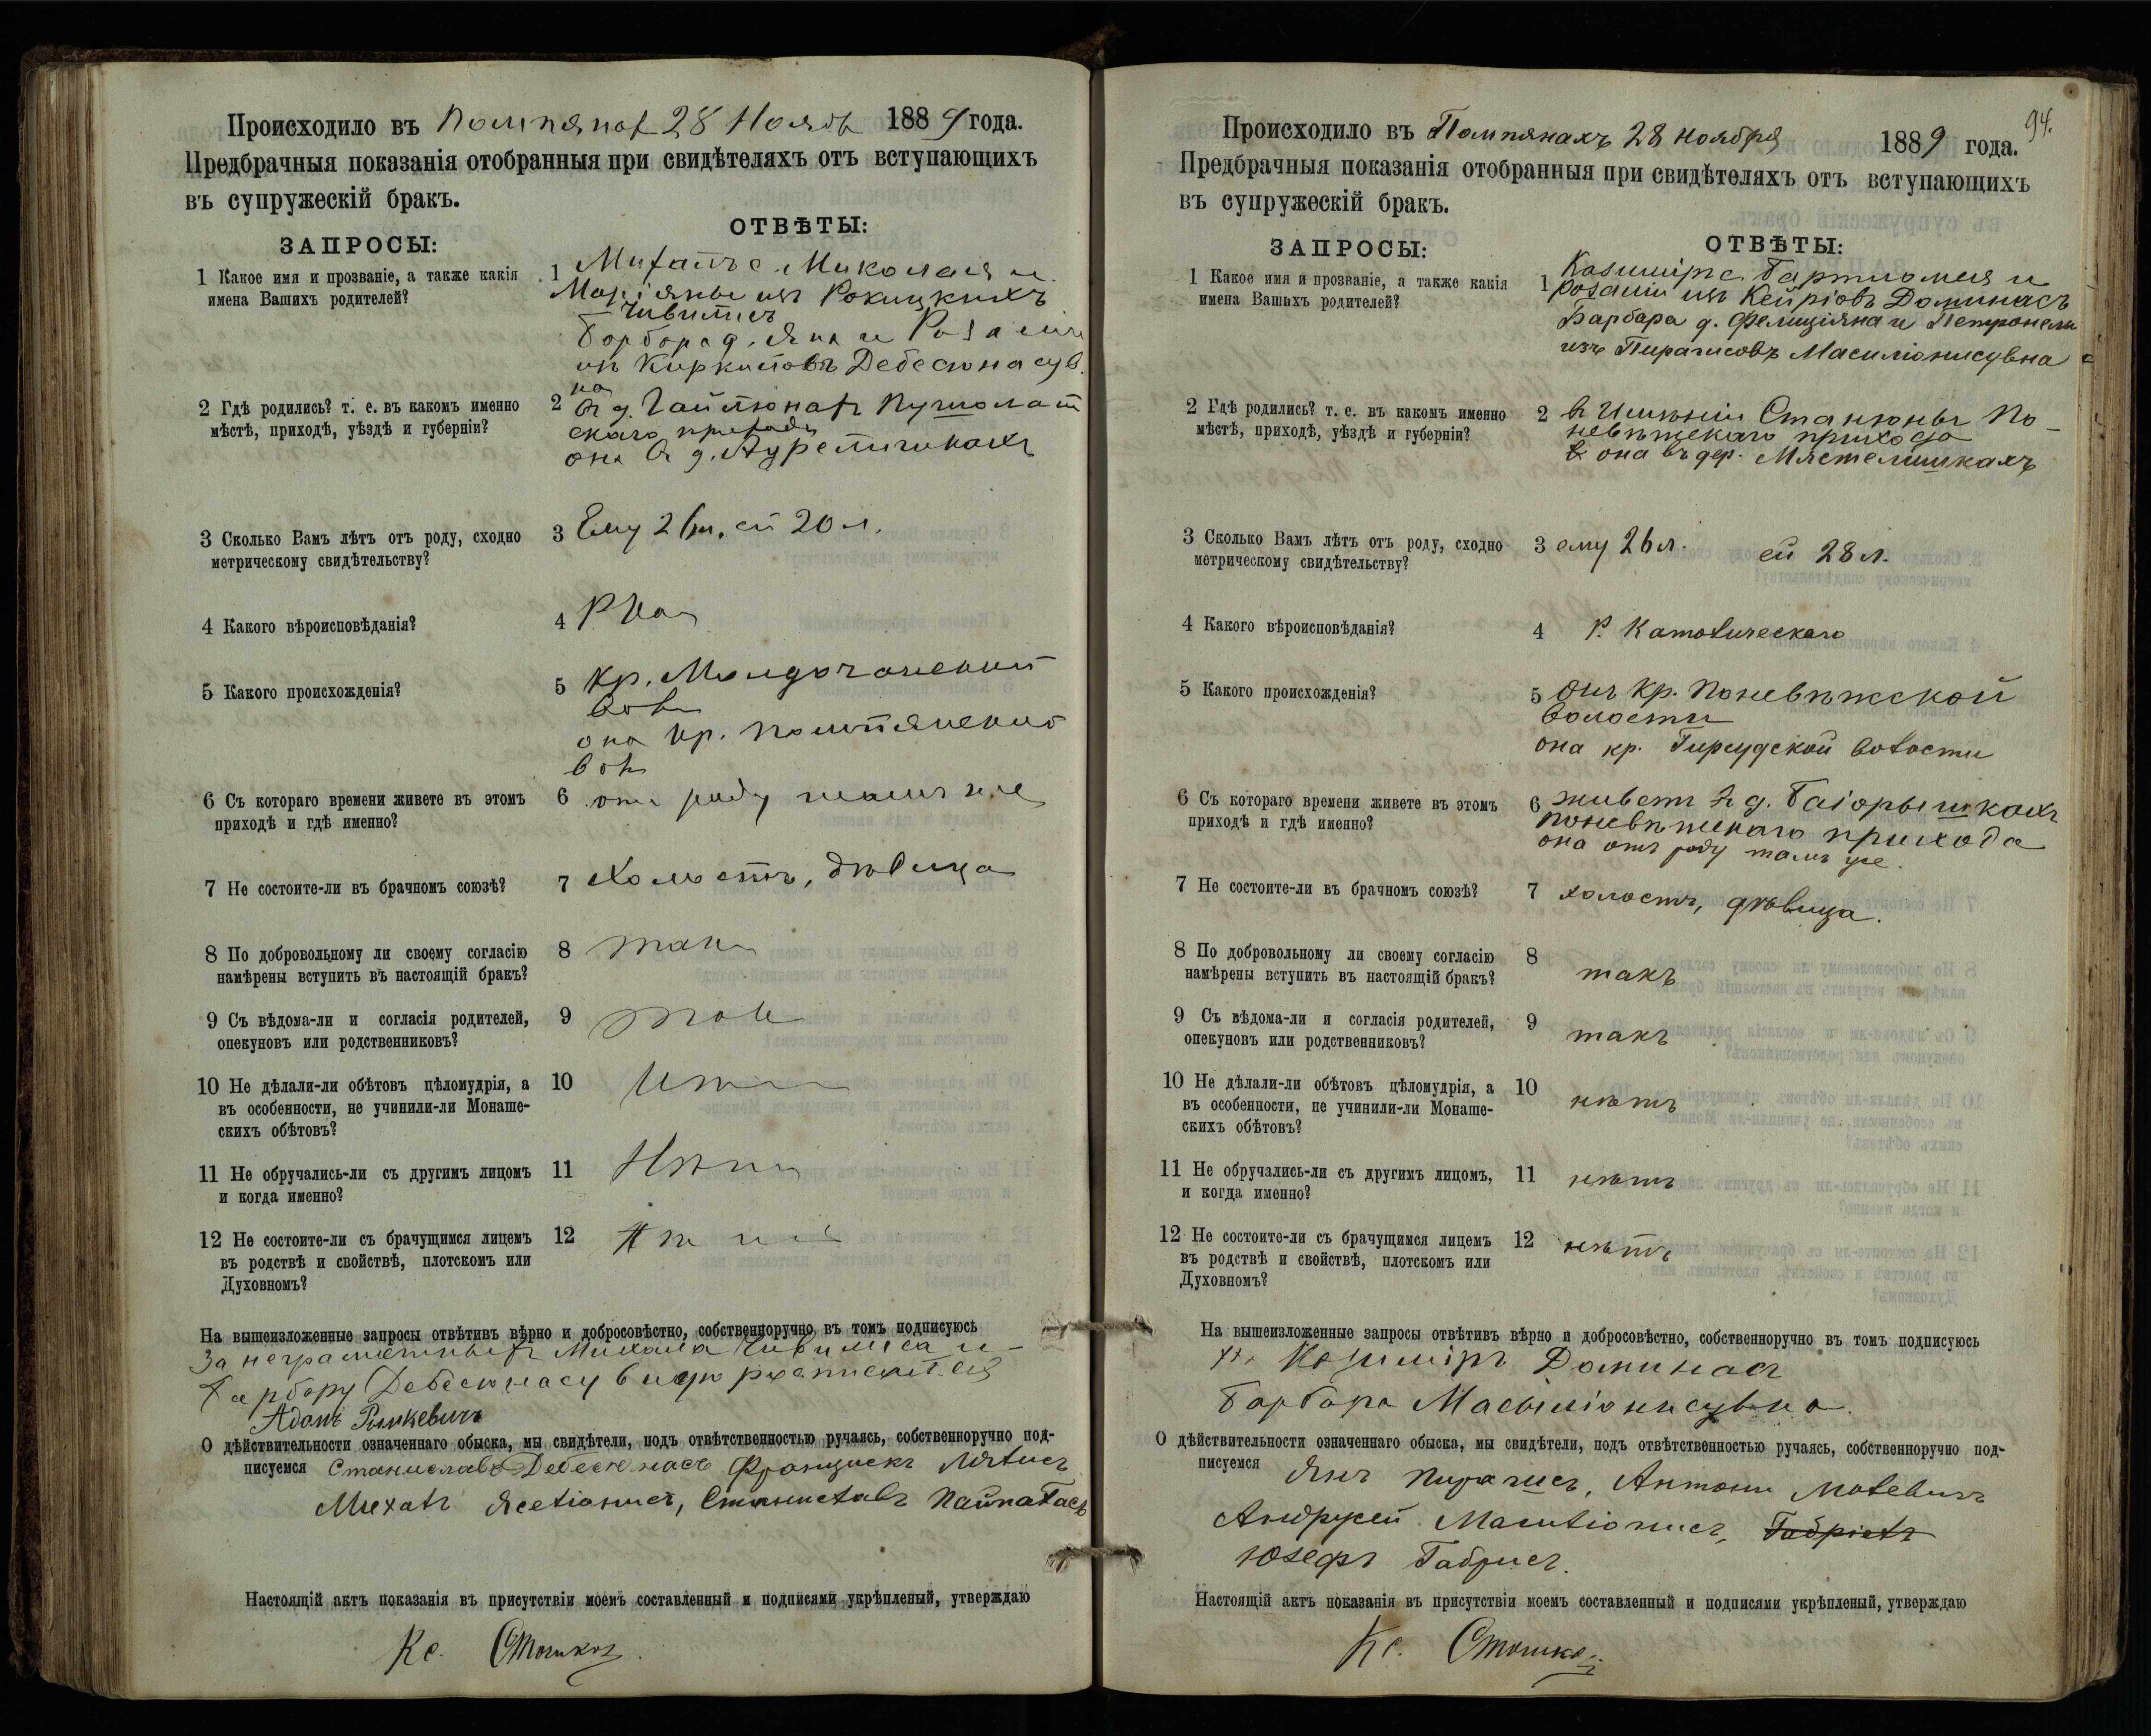 Происходило въ Помпянах 28 Нояб 1889 года.
Предбрачныя показанія отобранныя при свидѣтеляхъ отъ вступающихъ
въ супружескій бракъ.
ЗАПРОСЫ:
ОТВѢТЫ:
1 Какое имя и прозваніе, а также какія
имена Вашихъ родителей?
1 Михаилъ с. Миколая и
Маріянны изъ Рокицкихъ
Чивилисъ
Барбора д. Яна и Розаліи
изъ Киркиловъ Дебесюнасув
на
2 Гдѣ родились? т. е. въ какомъ именно
мѣстѣ, приходѣ, уѣздѣ и губерніи?
2 въ д. Пушолат
скаго прихода
она въ д.
3 Сколько Вамъ лѣтъ отъ роду, сходно
метрическому свидѣтельству?
3 Ему 26 л. ей 20 л.
4 Какого вѣроисповѣданія?
4 РКат
5 Какого происхожденія?
5 кр.
вол
она кр. Помпянской
вол
6 Съ котораго времени живете въ этомъ
приходѣ и гдѣ именно?
6 отъ роду тамъ же
7 Не состоите-ли въ брачномъ союзѣ?
7 Холостъ, дѣвица
8 По добровольному ли своему согласію
намѣрены вступить въ настоящій бракъ?
8 такъ
9 Съ вѣдома-ли и согласія родителей,
опекуновъ или родственниковъ?
9 такъ
10 Не дѣлали-ли обѣтовъ цѣломудрія, а
въ особенности, не учинили-ли Монаше-
скихъ обѣтовъ?
10 Нѣтъ
11 Не обручались-ли съ другимъ лицомъ
и когда именно?
11 Нѣтъ
12 Не состоите-ли съ брачущимся лицемъ
въ родствѣ и свойствѣ, плотскомъ или
Духовномъ?
12 Нѣтъ
На вышеизложенные запросы отвѣтивъ вѣрно и добросовѣстно, собственноручно въ томъ подписуюсь
За неграмотныхъ Михала Чивилиса и
Барбору Дебесюнасувную росписался
Адамъ Римкевичъ
О дѣйствительности означеннаго обыска, мы свидѣтели, подъ отвѣтственностью ручаясь, собственноручно под-
писуемся Станиславъ Дебесюнасъ Францискъ Лятисъ
Михалъ Яселіонисъ, Станиславъ
Настоящій актъ показанія въ присутствіи моемъ составленный и подписями укрѣпленый, утверждаю
Кс.
94.
Происходило въ Помпянахъ 28 ноября 1889 года.
Предбрачныя показанія отобранныя при свидѣтеляхъ отъ вступающихъ
въ супружескій бракъ.
ЗАПРОСЫ:
ОТВѢТЫ:
1 Какое имя и прозваніе, а также какія
имена Вашихъ родителей?
1 Казиміръ с. Бартломея и
Розаліи изъ Кейріовъ Доминасъ
Барбара д. Фелиціяна и Петронели
изъ Пирагисовъ Масиліонисувна
2 Гдѣ родились? т. е. въ какомъ именно
мѣстѣ, приходѣ, уѣздѣ и губерніи?
2 въ Имѣніи Станюны По-
невѣжскаго прихода
она въ дер. Мястелишкахъ
3 Сколько Вамъ лѣтъ отъ роду, сходно
метрическому свидѣтельству?
3 ему 26 л. ей 28 л.
4 Какого вѣроисповѣданія?
4 Р. Католическаго
5 Какого происхожденія?
5 онъ кр. Поневѣжской
волости
она кр. Гирсудской волости
6 Съ котораго времени живете въ этомъ
приходѣ и гдѣ именно?
6 живетъ въ д.
поневѣжскаго прихода
она отъ роду тамъ же.
7 Не состоите-ли въ брачномъ союзѣ?
7 холостъ, дѣвица.
8 По добровольному ли своему согласію
намѣрены вступить въ настоящій бракъ?
8 такъ
9 Съ вѣдома-ли и согласія родителей,
опекуновъ или родственниковъ?
9 такъ
10 Не дѣлали-ли обѣтовъ цѣломудрія, а
въ особенности, не учинили-ли Монаше-
скихъ обѣтовъ?
10 нѣтъ
11 Не обручались-ли съ другимъ лицомъ,
и когда именно?
11 нѣтъ
12 Не состоите-ли съ брачущимся лицемъ
въ родствѣ и свойствѣ, плотскомъ или
Духовномъ?
12 нѣтъ
На вышеизложенные запросы отвѣтивъ вѣрно и добросовѣстно, собственноручно въ томъ подписуюсь
Казиміръ Доминасъ
Барбара Масыліонисувна
О дѣйствительности означеннаго обыска, мы свидѣтели, подъ отвѣтственностью ручаясь, собственноручно под-
писуемся Янъ Пирагисъ, Антони Матевичъ
Андржей Масиліонисъ, Габріелъ
Юзефъ Габрисъ.
Настоящій актъ показанія въ присутствіи моемъ составленный и подписями укрѣпленый, утверждаю
Кс.